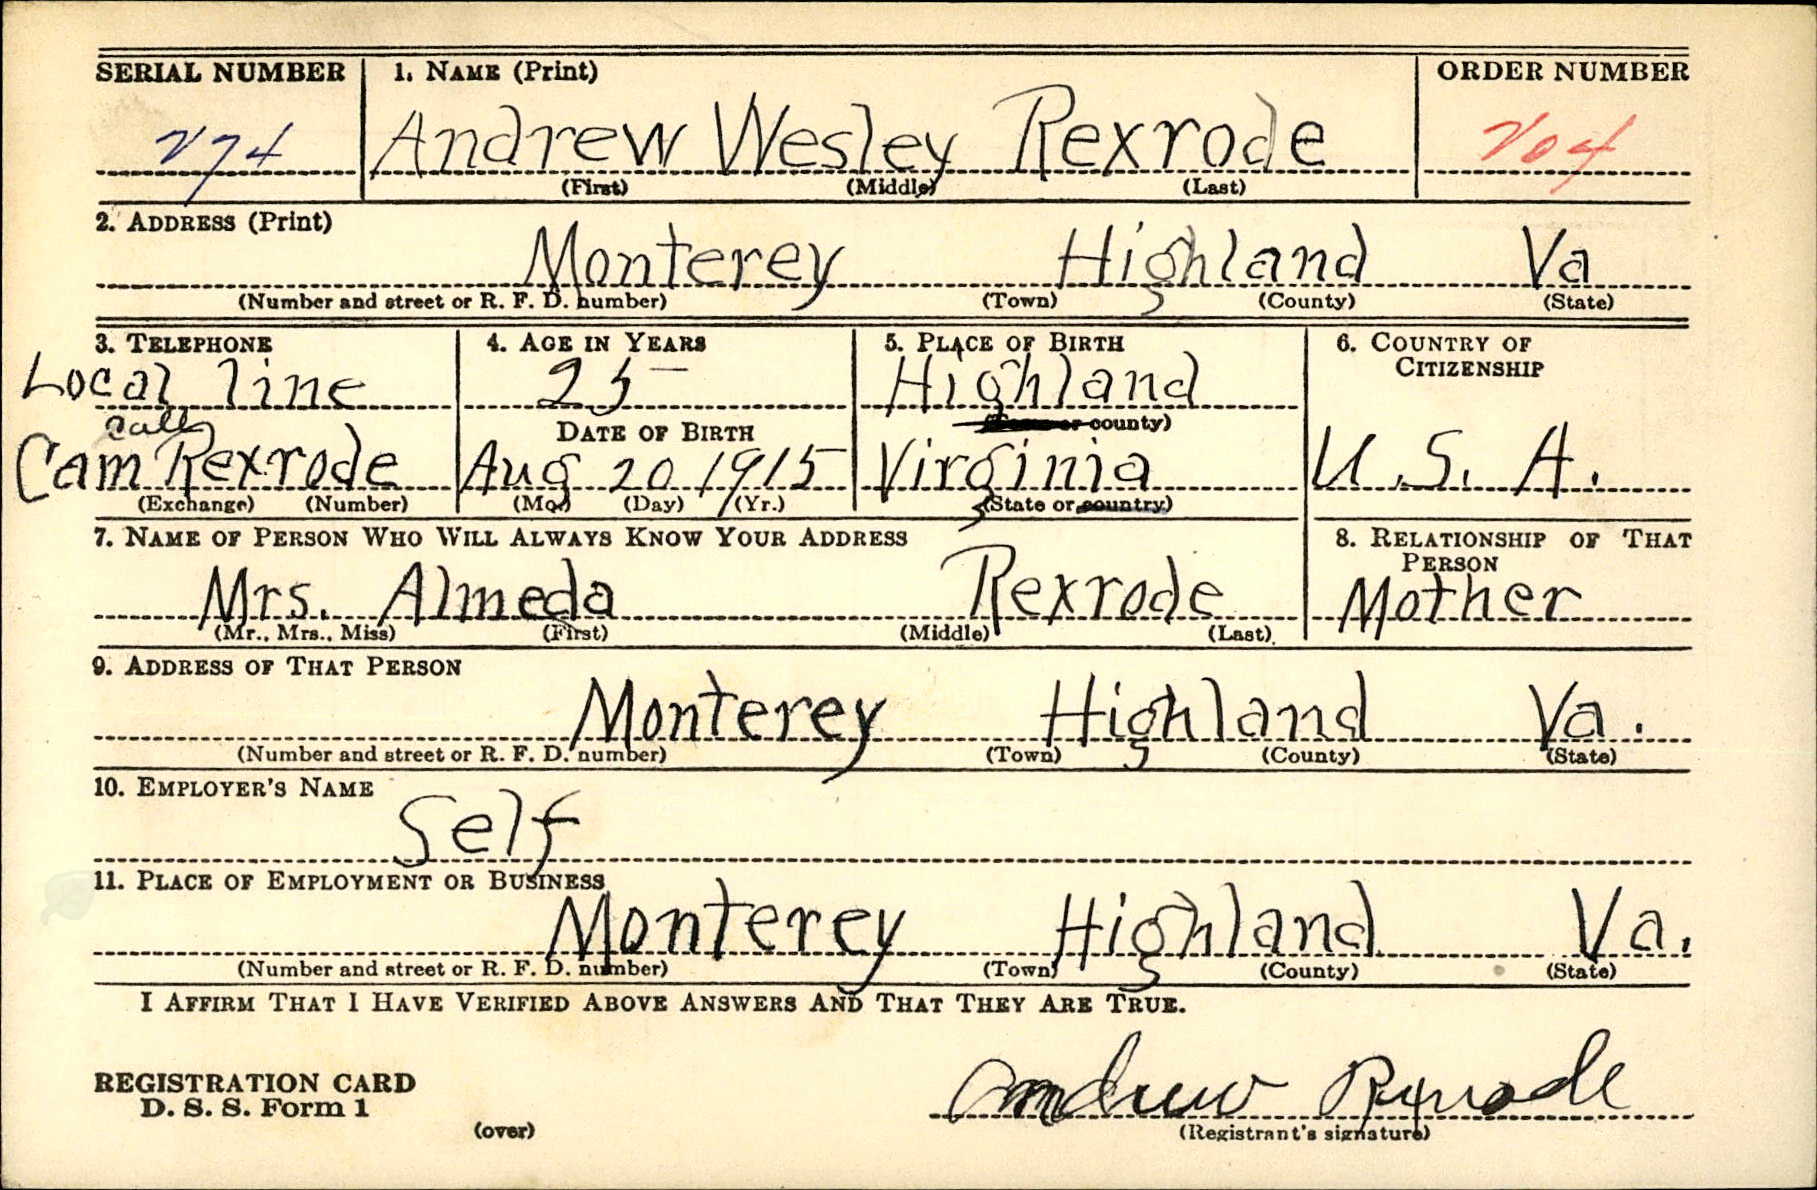 SERIAL NUMBER 1. NAME (Print) ORDER NUMBER
274 Andrew Wesley Rexrode 204
(First) (Middle) (Last)
2. ADDRESS (Print)
Monterey Highland Va
(Number and street or R. F. D. number) (Town) (County) (State)
3. TELEPHONE 4. AGE IN YEARS 5. PLACE OF BIRTH 6. COUNTRY OF CITIZENSHIP
Local line 25 Highland
(Town or county)
call DATE OF BIRTH
Cam Rexrode Aug 20 1915 Virginia U.S. A.
(Exchange) (Number) (Mo.) (Day) (Yr.) (State or country)
7. NAME OF PERSON WHO WILL ALWAYS KNOW YOUR ADDRESS 8. RELATIONSHIP OF THAT PERSON
Mrs. Almeda Rexrode Mother
(Mr., Mrs., Miss) (First) (Middle) (Last)
9. ADDRESS OF THAT PERSON
Monterey Highland Va.
(Number and street or R. F. D. number) (Town) (County) (State)
10. EMPLOYER'S NAME
Self
11. PLACE OF EMPLOYMENT OR BUSINESS
Monterey Highland Va.
(Number and street or R. F. D. number) (Town) (County) (State)
I AFFIRM THAT I HAVE VERIFIED ABOVE ANSWERS AND THAT THEY ARE TRUE.
Andrew Rexrode
REGISTRATION CARD
D. S. S. Form 1
(over) (Registrant's signature)